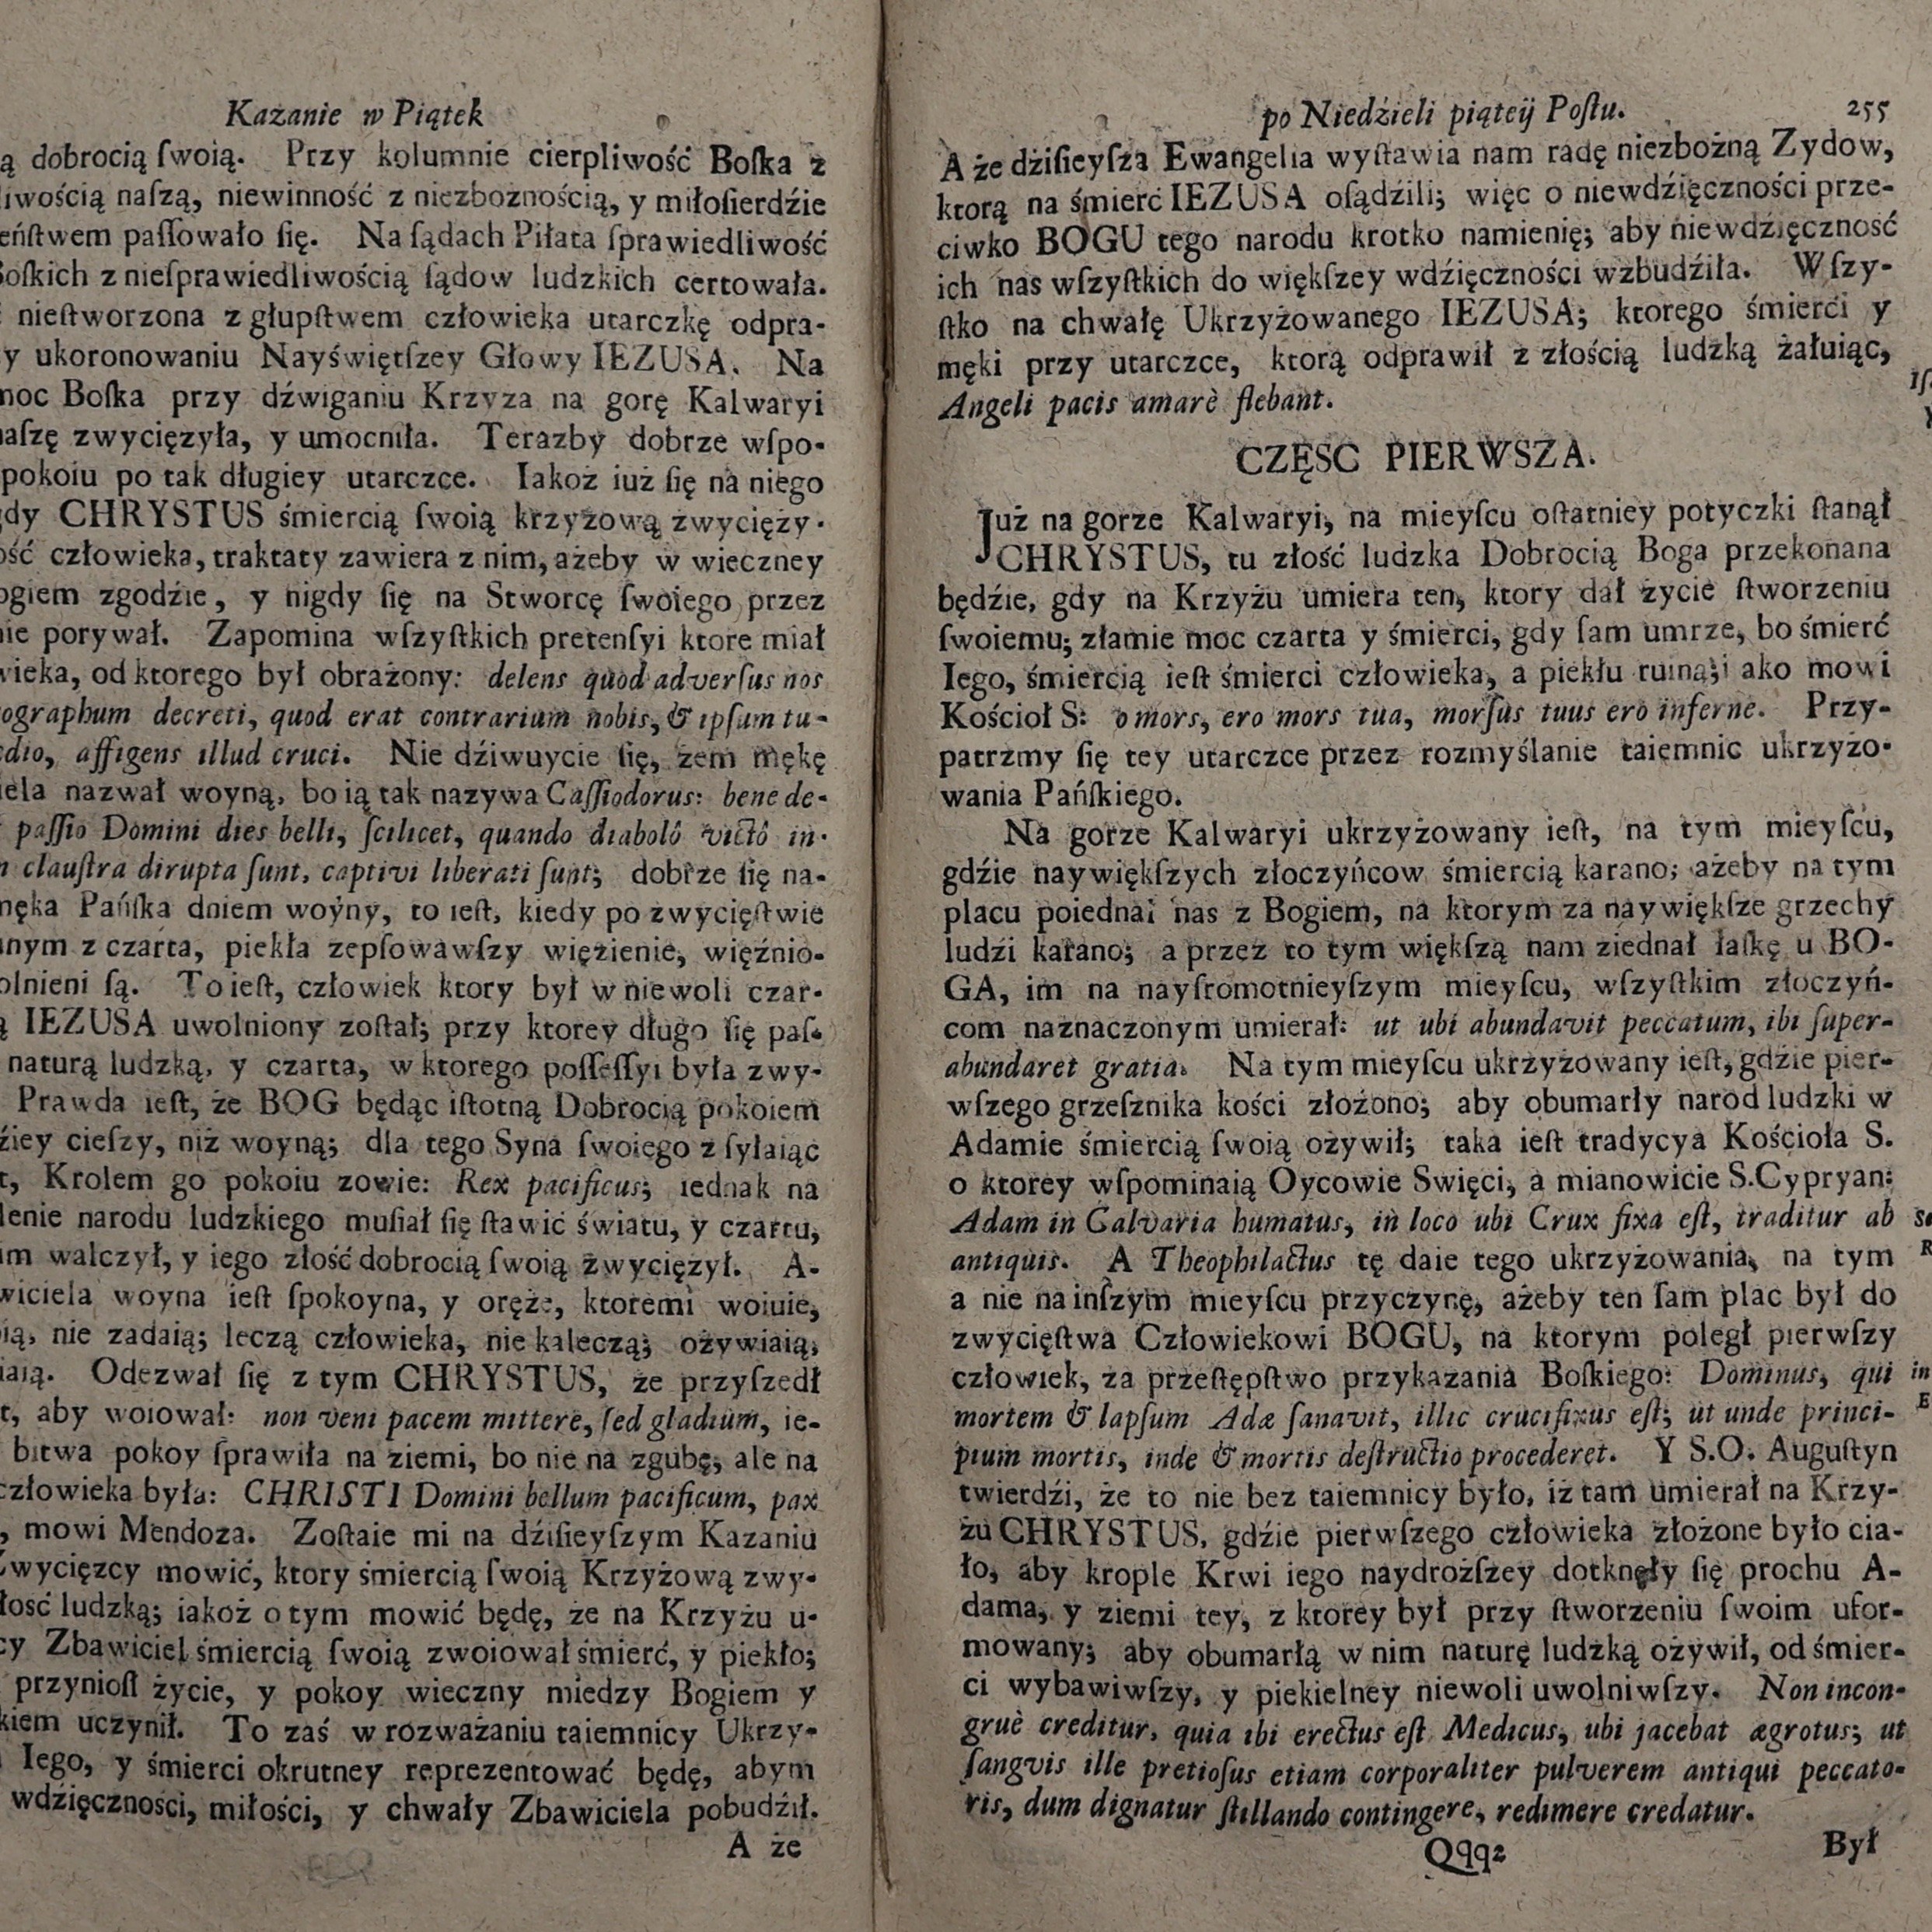 Kazanie w Piątek
ą dobrocią ſwoią. Przy kolumnie cierpliwość Boſka z
liwością naſzą, niewinność z niezbożnością, y miłoſierdźie
eńſtwem paſſowało ſię. Na ſądach Piłata ſprawiedliwość
Boſkich z nieſprawiedliwością ſądow ludzkich certowała.
nieſtworzona z głupſtwem człowieka utarczkę odpra-
y ukoronowaniu Nayświętſzey Głowy IEZUSA. Na
moc Boſka przy dźwiganiu Krzyza na gorę Kalwaryi
naſzę zwyciężyła, y umocniła. Terazby dobrze wſpo-
pokoiu po tak długiey utarczce. Iakoż iuż ſię na niego
gdy CHRYSTUS śmiercią ſwoią krzyżową zwycięży-
ość człowieka, traktaty zawiera z nim, ażeby w wieczney
ogiem zgodźie, y nigdy ſię na Stworcę ſwoiego przez
nie porywał. Zapomina wſzyſtkich pretenſyi ktore miał
wieka, od ktorego był obrażony: delens quod adverſus nos
ographum decreti, quod erat contrarium nobis, & ipſum tu-
edio, affigens illud cruci. Nie dźiwuycie ſię, żem mękę
iela nazwał woyną, bo ią tak nazywa Caſſiodorus: bene de-
paſſio Domini dies belli, ſcilicet, quando diabolô victô in-
n clauſtra dirupta ſunt, captivi liberati ſunt; dobrze ſię na-
męka Pańſka dniem woyny, to ieſt, kiedy po zwycięſtwie
nym z czarta, piekła zepſowawſzy więżienie, więźnio-
olnieni ſą. To ieſt, człowiek ktory był w niewoli czar-
ą IEZUSA uwolniony zoſtał; przy ktorey długo ſię paſ-
naturą ludzką, y czarta, w ktorego poſſeſſyi była zwy-
Prawda ieſt, że BOG będąc iſtotną Dobrocią pokoiem
źiey cieſzy, niż woyną; dla tego Syna ſwoiego z ſyłaiąc
t, Krolem go pokoiu zowie: Rex pacificus; iednak na
lenie narodu ludzkiego muſiał ſię ſtawić światu, y czartu,
im walczył, y iego złość dobrocią ſwoią zwyciężył. A-
wiciela woyna ieſt ſpokoyna, y oręże, ktoremi woiuie,
ią, nie zadaią; leczą człowieka, nie kaleczą; ożywiaią,
iaią. Odezwał ſię z tym CHRYSTUS, że przyſzedł
t, aby woiował: non veni pacem mittere, ſed gladium, ie-
bitwa pokoy ſprawiła na ziemi, bo nie na zgubę, ale na
człowieka była: CHRISTI Domini bellum pacificum, pax
, mowi Mendoza. Zoſtaie mi na dźiſieyſzym Kazaniu
Zwycięzcy mowić, ktory śmiercią ſwoią Krzyżową zwy-
łość ludzką; iakoż o tym mowić będę, że na Krzyżu u-
cy Zbawiciel śmiercią ſwoią zwoiował śmierć, y piekło;
przynioſł życie, y pokoy wieczny miedzy Bogiem y
kiem uczynił. To zaś w rozważaniu taiemnicy Ukrzy-
Iego, y śmierci okrutney reprezentować będę, abym
wdźięczności, miłości, y chwały Zbawiciela pobudźił.
A że
po Niedźieli piąteij Poſtu. 255
A że dźiſieyſza Ewangelia wyſtawia nam radę niezbożną Zydow,
ktorą na śmierć IEZUSA oſądźili; więc o niewdźięczności prze-
ciwko BOGU tego narodu krotko namienię; aby niewdźięczność
ich nas wſzyſtkich do większey wdźięczności wzbudźiła. Wſzy-
ſtko na chwałę Ukrzyżowanego IEZUSA; ktorego śmierci y
męki przy utarczce, ktorą odprawił z złością ludzką żałuiąc,
Angeli pacis amarè flebant.
CZĘSC PIERWSZA.
Już na gorze Kalwaryi, na mieyſcu oſtatniey potyczki ſtanął
CHRYSTUS, tu złość ludzka Dobrocią Boga przekonana
będźie, gdy na Krzyżu umiera ten, ktory dał życie ſtworzeniu
ſwoiemu; złamie moc czarta y śmierci, gdy ſam umrze, bo śmierć
Iego, śmiercią ieſt śmierci człowieka, a piekłu ruiną;i ako mowi
Kościoł S: o mors, ero mors tua, morſus tuus ero inferne. Przy-
patrzmy ſię tey utarczce przez rozmyślanie taiemnic ukrzyżo-
wania Pańſkiego.
Na gorze Kalwaryi ukrzyżowany ieſt, na tym mieyſcu,
gdźie naywiększych złoczyńcow śmiercią karano; ażeby na tym
placu poiednał nas z Bogiem, na ktorym za naywiękſze grzechy
ludźi karano; a przez to tym większą nam ziednał łaſkę u BO-
GA, im na nayſromotnieyſzym mieyſcu, wſzyſtkim złoczyń-
com naznaczonym umierał: ut ubi abundavit peccatum, ibi ſuper-
abundaret gratia. Na tym mieyſcu ukrzyżowany ieſt, gdźie pier-
wſzego grzeſznika kości złożono; aby obumarły narod ludzki w
Adamie śmiercią ſwoią ożywił; taka ieſt tradycya Kościoła S.
o ktorey wſpominaią Oycowie Swięci, a mianowicie S. Cypryan:
Adam in Calvaria humatus, in loco ubi Crux fixa eſt, traditur ab
antiquis. A Theophilactus tę daie tego ukrzyżowania, na tym
a nie na inſzym mieyſcu przyczynę, ażeby ten ſam plac był do
zwycięſtwa Człowiekowi BOGU, na ktorym poległ pierwſzy
człowiek, za przeſtępſtwo przykazania Boſkiego: Dominus, qui
mortem & lapſum Adæ ſanavit, illic crucifixus eſt; ut unde princi-
pium mortis, inde & mortis deſtructio procederet. Y S.O. Auguſtyn
twierdźi, że to nie bez taiemnicy było, iż tam umierał na Krzy-
żu CHRYSTUS, gdźie pierwſzego człowieka złożone było cia-
ło, aby krople Krwi iego naydrożſzey dotknęły ſię prochu A-
dama, y ziemi tey, z ktorey był przy ſtworzeniu ſwoim ufor-
mowany; aby obumarłą w nim naturę ludzką ożywił, od śmier-
ci wybawiwſzy, y piekielney niewoli uwolniwſzy. Non incon-
gruè creditur, quia ibi erectus eſt Medicus, ubi jacebat ægrotus; ut
ſangvis ille pretioſus etiam corporaliter pulverem antiqui peccato-
ris, dum dignatur ſtillando contingere, redimere credatur.
Qqq2 Był